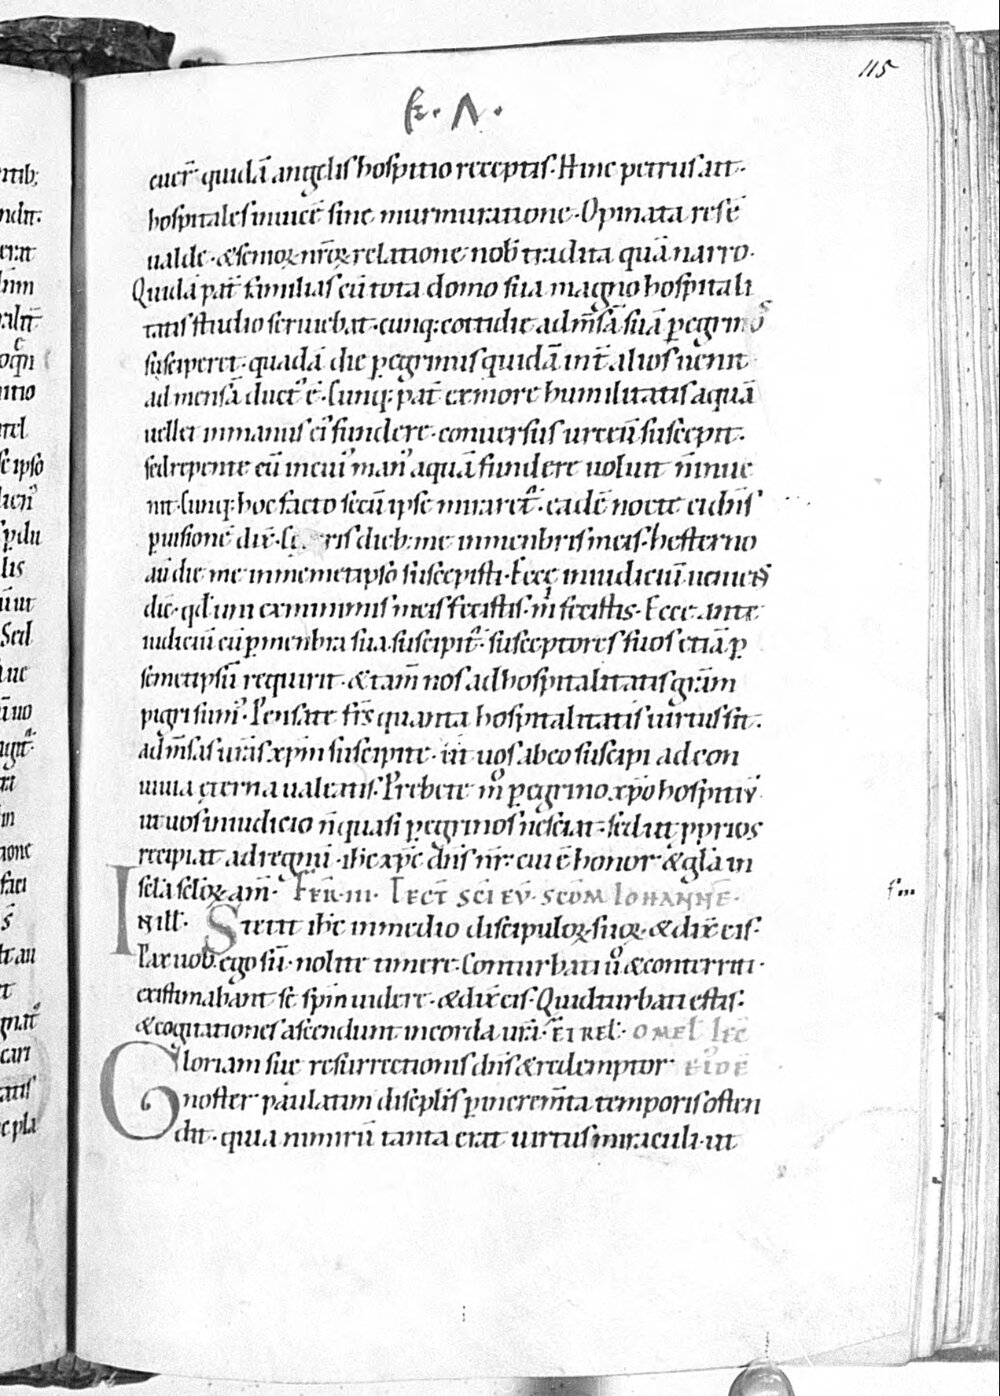 115
fr. Λ.
euer̄ quidā angelis hospitio receptis. Hinc petrus ait.
hospitales inuicē sine murmuratione. Opinata res ē
ualde. & senioꝝ nr̄oꝝ relatione nob̄ tradita quā narro.
Quidā pat̄ familias cū tota domo sua magno hospitali
tatis studio seruiebat. cunq; cottidie ad m̄sā suā ꝑegrinos
susciperet. quadā die ꝑegrinus quidā int̄ alios uenit
ad mensā duct᾽ ē. Cunq; pat̄ ex more humilitatis aquā
uellet in manus ei᾽ fundere. conuersus urceū suscepit.
sed repente eū in cui᾽ man᾽ aquā fundere uoluit n̄ inue
nit. Cunq; hoc facto secū ipse miraret᾽. eadē nocte ei dn̄s
ꝑ uisionē dix̄. Ceteris dieb; me in menbris meis. hesterno
aū die me in memetipso suscepisti. Ecce in iudiciū ueniens
dic̄. qd̄ uni ex minimis meis fecistis. m̄ fecistis. Ecce ante
iudiciū cū ꝑ menbra sua suscipit᾽. susceptores suos etiā ꝑ
semetipsū requirit. & tam̄ nos ad hospitalitatis gr̄am
pigri sum᾽. Pensate fr̄s quanta hospitalitatis uirtus sit.
ad m̄sas ur̄as xp̄m suscipite. ut uos ab eo suscipi ad con
uiuia ęterna ualeatis. Prebete m̊ ꝑegrino xp̄o hospitiū.
ut uos in iudicio n̄ quasi ꝑegrinos nesciat. sed ut ꝓprios
recipiat ad regnū. ih̄c xp̄c dn̄s nr̄. cui ē honor & gl̄a in
scl̄a scl̄oꝝ am̄. FER. III. LECT̄ SCĪ EV̄. SCDM̄ IOHANNĒ.
IN ill̄. Stetit ih̄c in medio discipuloꝝ suoꝝ. & dix̄ eis.
Pax uob̄. ego sū. nolite timere. Conturbati ů & conterriti.
existimabant se sp̄m uidere. & dix̄ eis. Quid turbati estis.
& cogitationes ascendunt in corda ur̄a. ET REL̄. OMEL̄ LEC̄
Gloriam sue resurrectionis dn̄s & redemptor EI᾽DĒ
noster paulatim discipl̄is ꝑ increm̄ta temporis osten
dit. quia nimirū tanta erat uirtus miraculi. ut